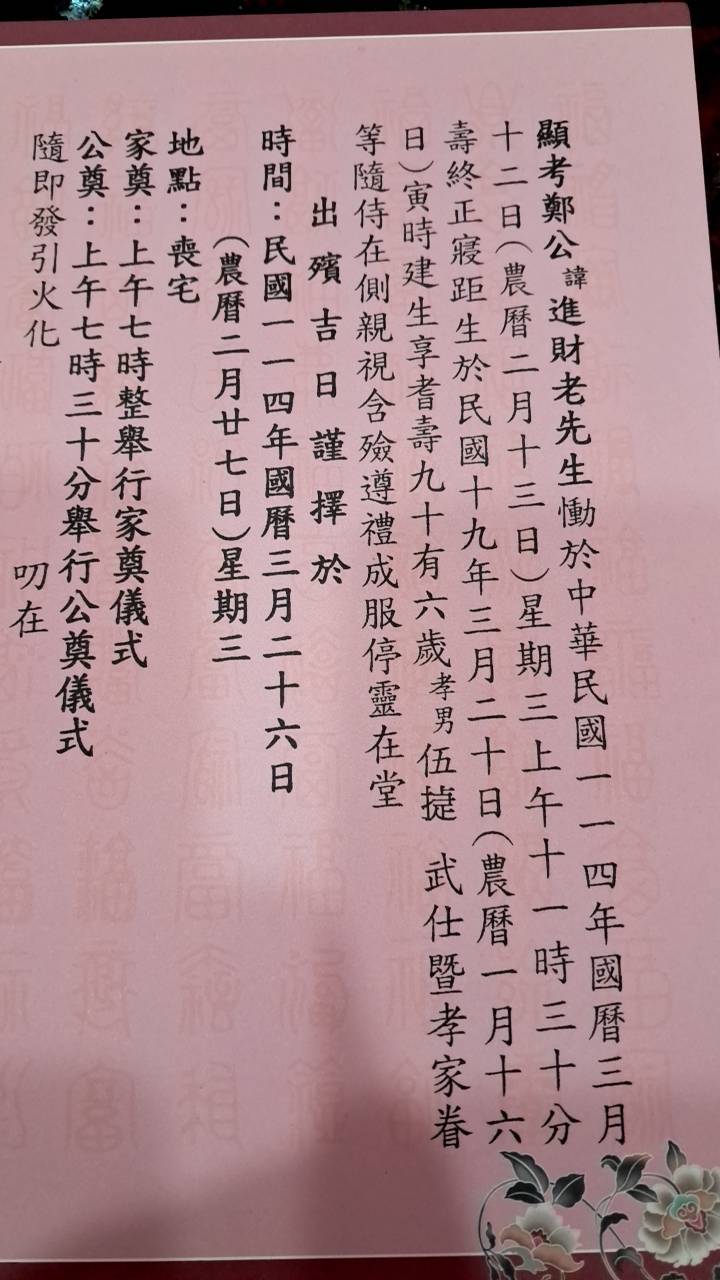 顯考鄭公諱進財老先生慟於中華民國一一四年國曆三月
十二日(農曆二月十三日)星期三上午十一時三十分
壽終正寢距生於民國十九年三月二十日(農曆一月十六
日)寅時建生享耆壽九十有六歲孝男伍㨗 武仕暨孝家眷
等隨侍在側親視含殮遵禮成服停靈在堂
出殯吉日謹擇於
時間：民國一一四年國曆三月二十六日
(農曆二月廿七日)星期三
地點：喪宅
家奠：上午七時整舉行家奠儀式
公奠：上午七時三十分舉行公奠儀式
隨即發引火化
叨在